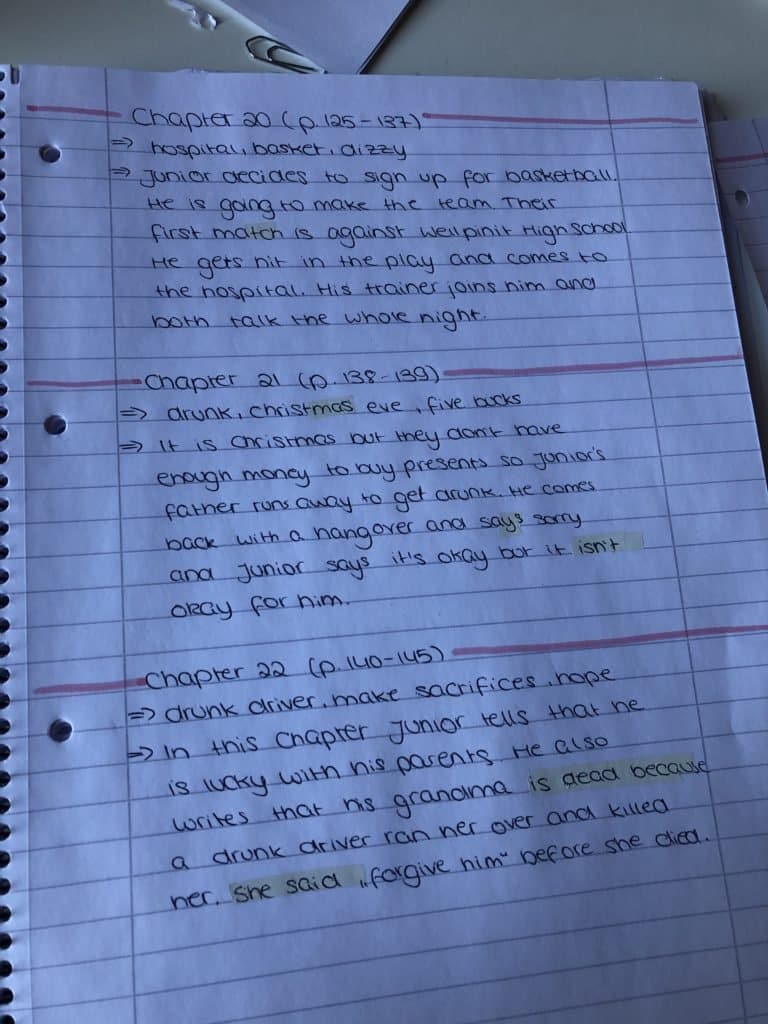 Chapter 20 (p.125-137)
⇒ hospital, basket, dizzy
⇒ Junior decides to sign up for basketball.
He is going to make the team. Their
first match is against Wellpinit High School
He gets hit in the play and comes to
the hospital. His trainer joins him and
both talk the whole night.
Chapter 21 (p. 138-139)
⇒ drunk, christmas eve, five bucks
⇒ It is Christmas but they don't have
enough money to buy presents so Junior's
father runs away to get drunk. He comes
back with a hangover and says sorry
and Junior says it's okay but it isn't
okay for him.
Chapter 22 (p. 140-145)
⇒ drunk driver, make sacrifices, hope
⇒ In this Chapter Junior tells that he
is lucky with his parents. He also
writes that his grandma is dead because
a drunk driver ran her over and killed
her. She said „forgive him“ before she died.